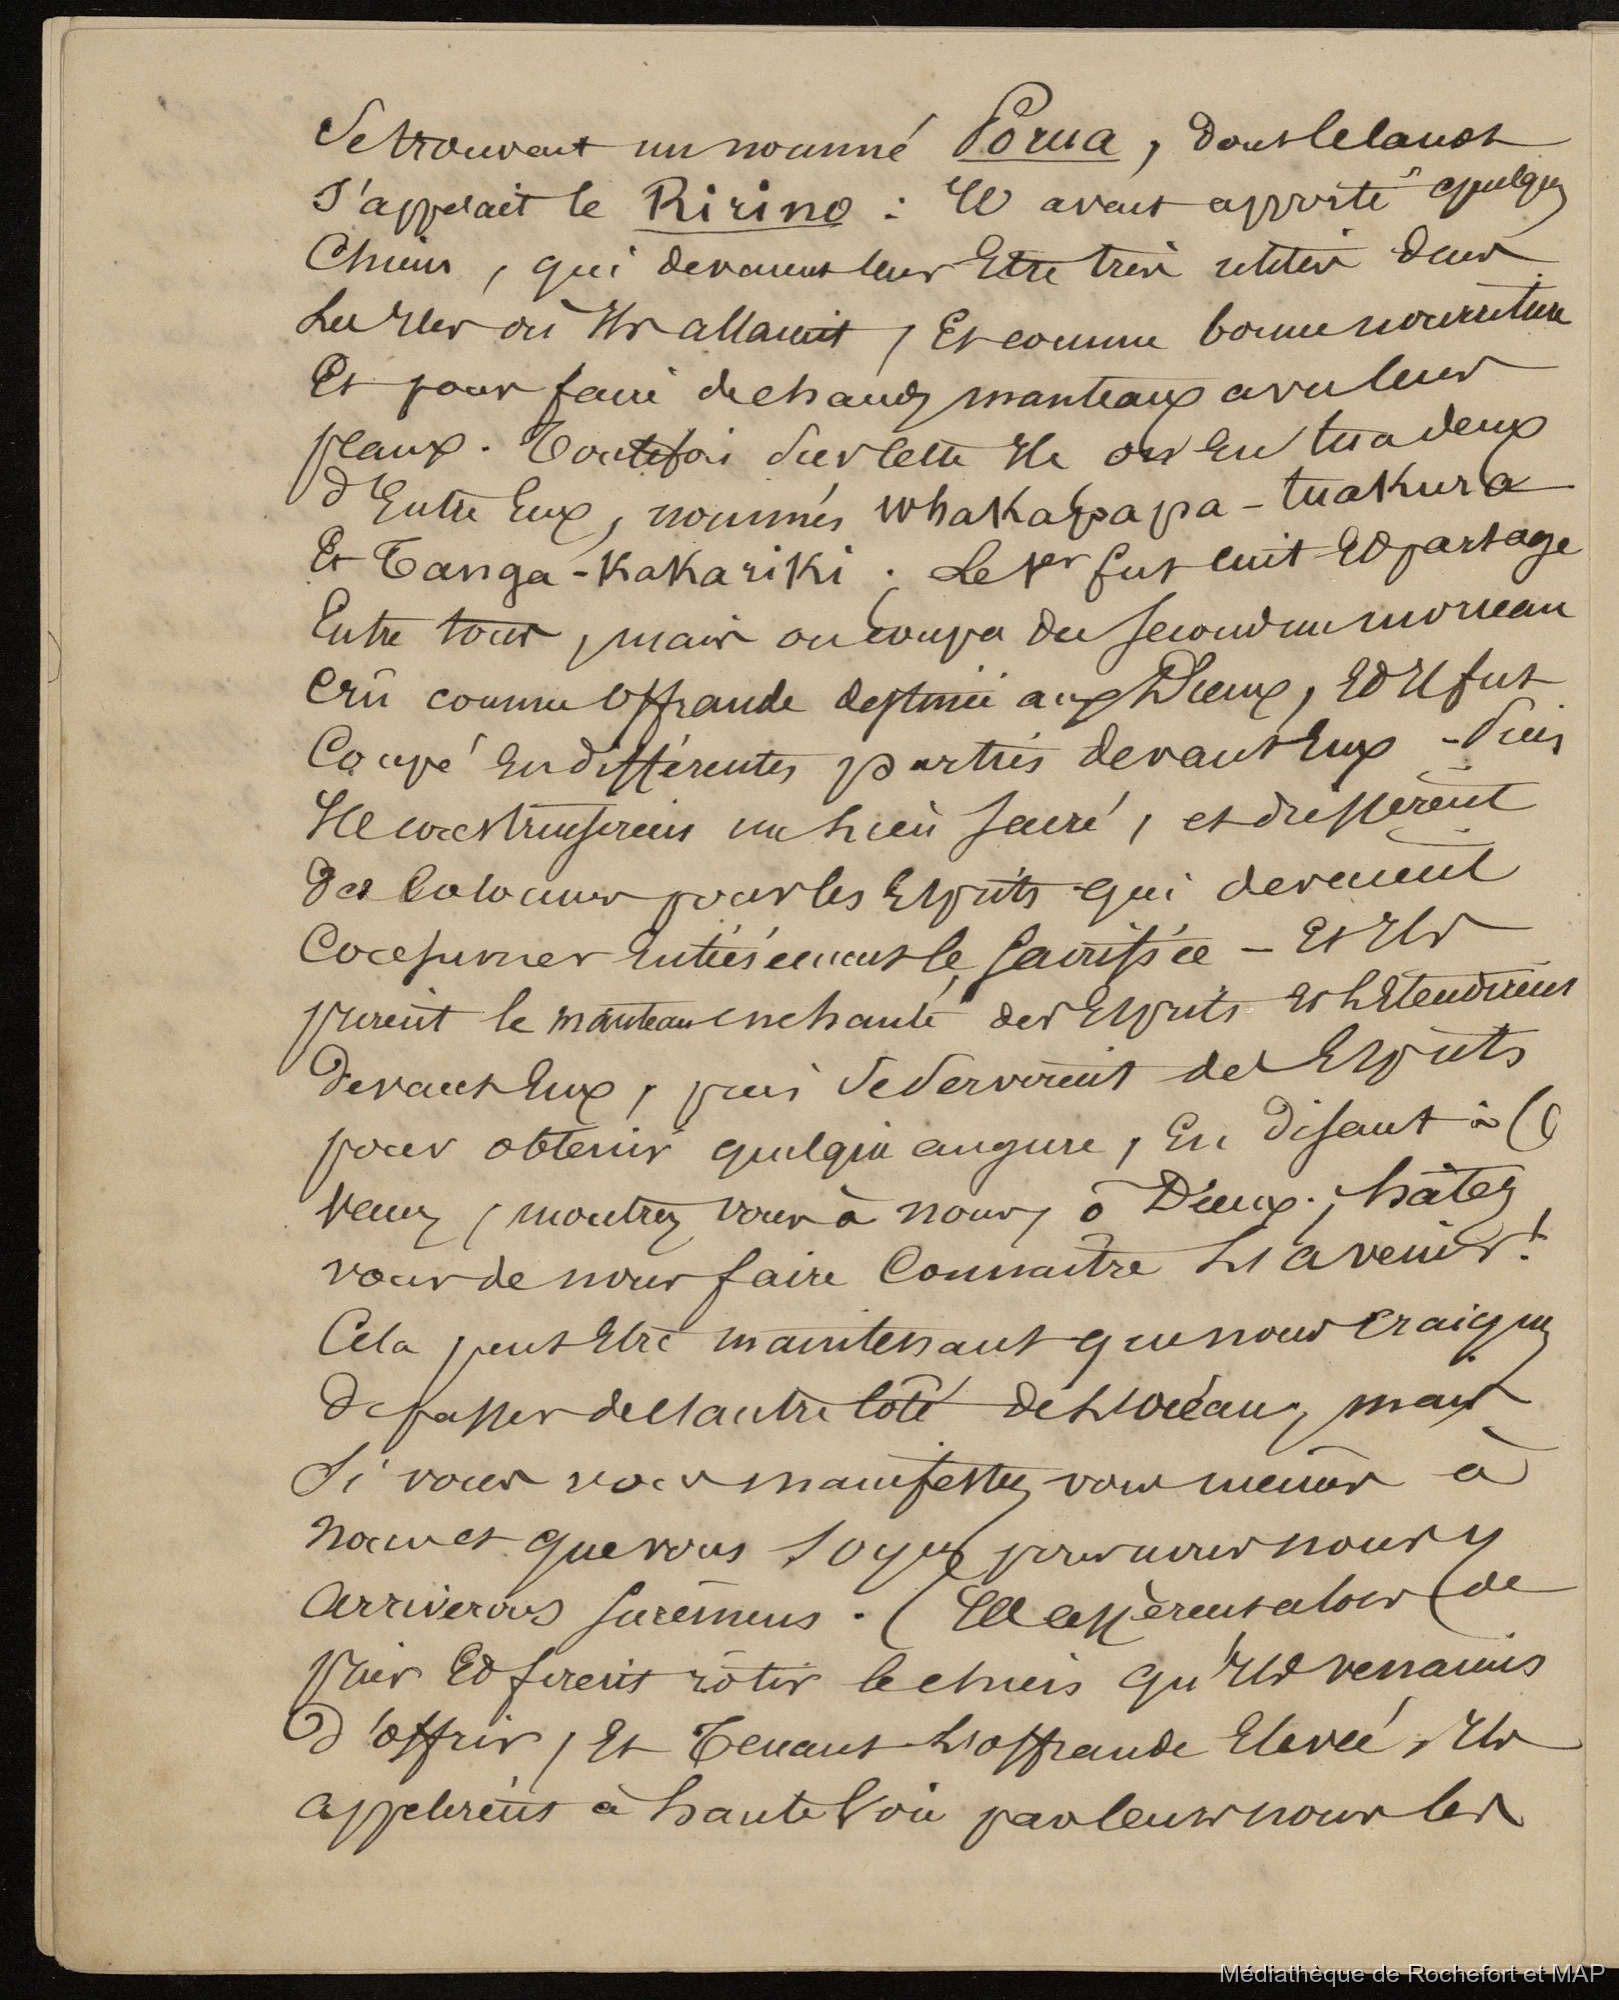 Se trouvait un nommé Porua, dont le canot
S'appelait le Ririno : Il avait apporté quelques
Chiens, qui devaient leur Etre très utiles dans
Les Iles où Ils allaient, Et comme bonne nourriture
Et pour faire de chauds manteaux avec leurs
peaux. Toutefois sur cette Ile on En tua deux
d'Entre Eux, nommés Whakapapa-tuakura
Et Tanga-Kakariki ; Le 1er fut cuit Et partagé
Entre tous, mais on coupa du second un morceau
Crû comme Offrande destinée aux Dieux, Et Il fut
Coupé En différentes parties devant Eux - Puis
Ils construisirent un lieu sacré, et dressèrent
Des Colonnes pour les Esprits qui devaient
Consumer Entièrement le sacrifice - Et Ils
prirent le manteau enchanté des Esprits Et L'Etendirent
Devant Eux, puis se servirent des Esprits
pour obtenir quelque augure, En disant : (O
Venez, montrez vous à nous, ô Dieux ; hâtez
vous de nous faire Connaitre L'avenir !
Cela peut Etre maintenant que nous craignons
De passer de l'autre Côté de L'océan, mais
Si vous vous manifestez vous mêmes à
Nous et que vous Soyez pour nous nous y
Arriverons surement. (Ils cessèrent alors de
prier Et firent rôtir le chien qu'Ils venaient
D'offrir, Et Tenant L'offrande Elevée, Ils
appelèrent à haute Voix par leurs noms les
Médiathèque de Rochefort et MAP